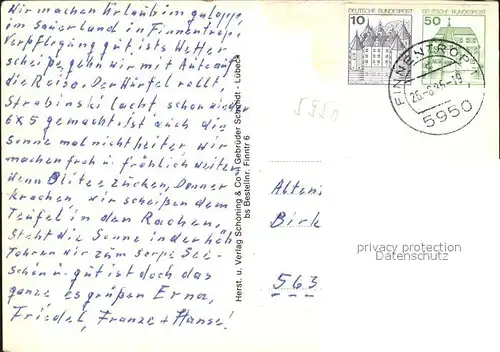 Wir machen Urlaub im galopp,
im Sauerland in Finnentrop.
Verpflegung gut, ists Wetter
scheiße gehn wir mit Auto auf
die Reise. Der Würfel rollt,
Strabinski lacht schon wieder
6x5 gemacht ist auch die
Sonne mal nicht heiter wir
machen froh u. fröhlich weiter
wenn Blitze zücken, Donner
krachen, wir scheißen dem
Teufel in den Rachen,
steht die Sonne in der Höh
fahren wir zum Sorpe See -
Schön u. gut ist doch das
ganze es grüßen Erna,
Friedel, Franze + Hanse!
Herst. u. Verlag Schöning & Co + Gebrüder Schmidt · Lübeck
bs Bestellnr. Finntr 6
DEUTSCHE BUNDESPOST
10
DEUTSCHE BUNDESPOST
50
FINNENTROP 1
26.-6.85-19
5950
5950
Alteni
Birk
563
privacy protection
Datenschutz